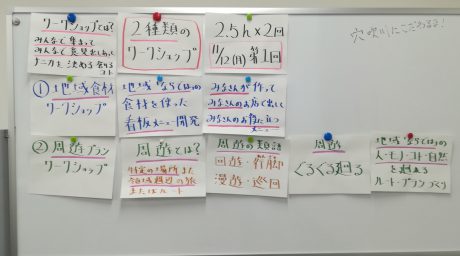 ワークショップとは?
みんなで集まって
みんなで意見出しあって
ナニカを決める会する
コト
2種類の
ワークショップ
2.5h×2回
11/12(日)第1回
穴吹川にこだわるな!
① 地域食材
ワークショップ
地域ならではの
食材を使った
看板メニュー開発
みなさんが作って
みなさんのお店で出して
みなさんのお役に立つ
メニュー
② 周遊プラン
ワークショップ
周遊とは?
特定の場所また
は地域周辺の旅
またはルート
周遊の類語
回遊・行脚
漫遊・巡回
周遊
ぐるぐる回る
地域ならではの
人・モノ・コト・自然
を廻る
ルート・プランづくり